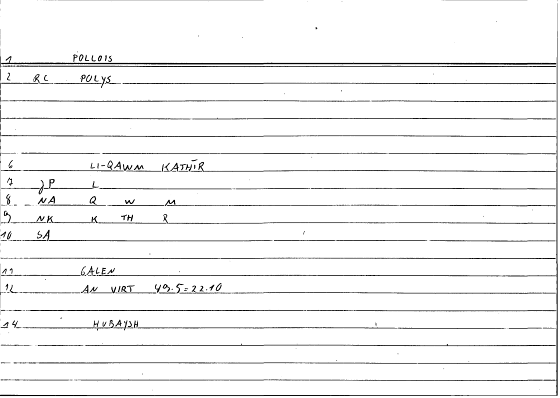 1 POLLOIS
2 RC POLYS
6 LI-QAWM KATHĪR
7 JP L
8 NA Q W M
9 NK K TH R
10 SA
11 GALEN
12 AN VIRT 49.5=22.10
14 HUBAYSH